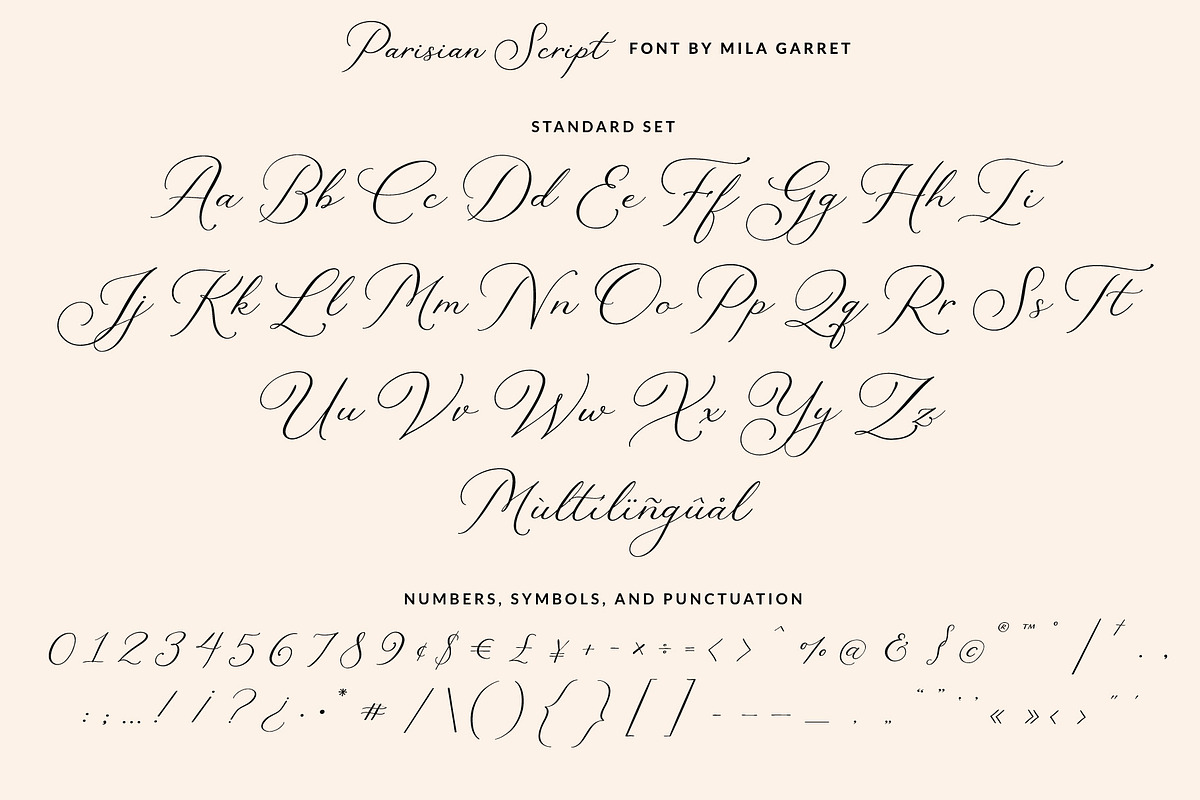 Parisian Script FONT BY MILA GARRET
STANDARD SET
Aa Bb Cc Dd Ee Ff Gg Hh Ii
Jj Kk Ll Mm Nn Oo Pp Qq Rr Ss Tt
Uu Vv Ww Xx Yy Zz
Mùltılïñgûål
NUMBERS, SYMBOLS, AND PUNCTUATION
0 1 2 3 4 5 6 7 8 9 ¢ $ € £ ¥ + − × ÷ = < > ^ % @ & ∫ © ® ™ ° / † . ,
: ; … ! ¡ ? ¿ · • * # / \ ( ) { } [ ] - – — _ ‚ „ “ ” ‘ ’ « » ‹ › " '